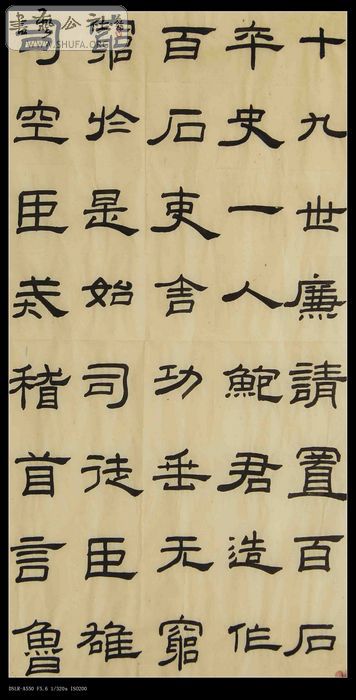 十九世廉請置百石
卒史一人鮑君造作
百石吏舍功垂无窮
於是始司徒臣雄
司空臣戒稽首言魯
書藝公社
WWW.SHUFA.ORG
DSLR-A550 F5.6 1/320s ISO200